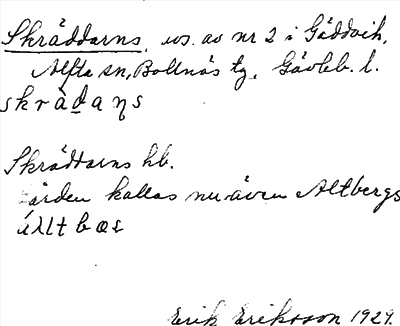 Skräddarns, ws. av nr 2 i Gäddvik,
Alfta sn, Bollnäs tg, Gävleb. l.
skräda̱ɳs
Skräddarns hb.
gården kallas nu även Altbergs
Erik Eriksson 1929.